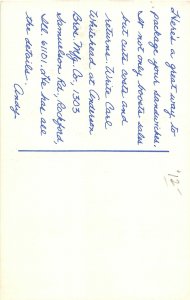 Here's a great way to
package your sandwiches.
It not only boosts sales
but cuts costs and
returns. Write Carl
Whitehead at Anderson
Bros. Mfg. Co., 1303
Samuelson Rd., Rockford,
Ill. 61101. He has all
the details.
Andy
'72